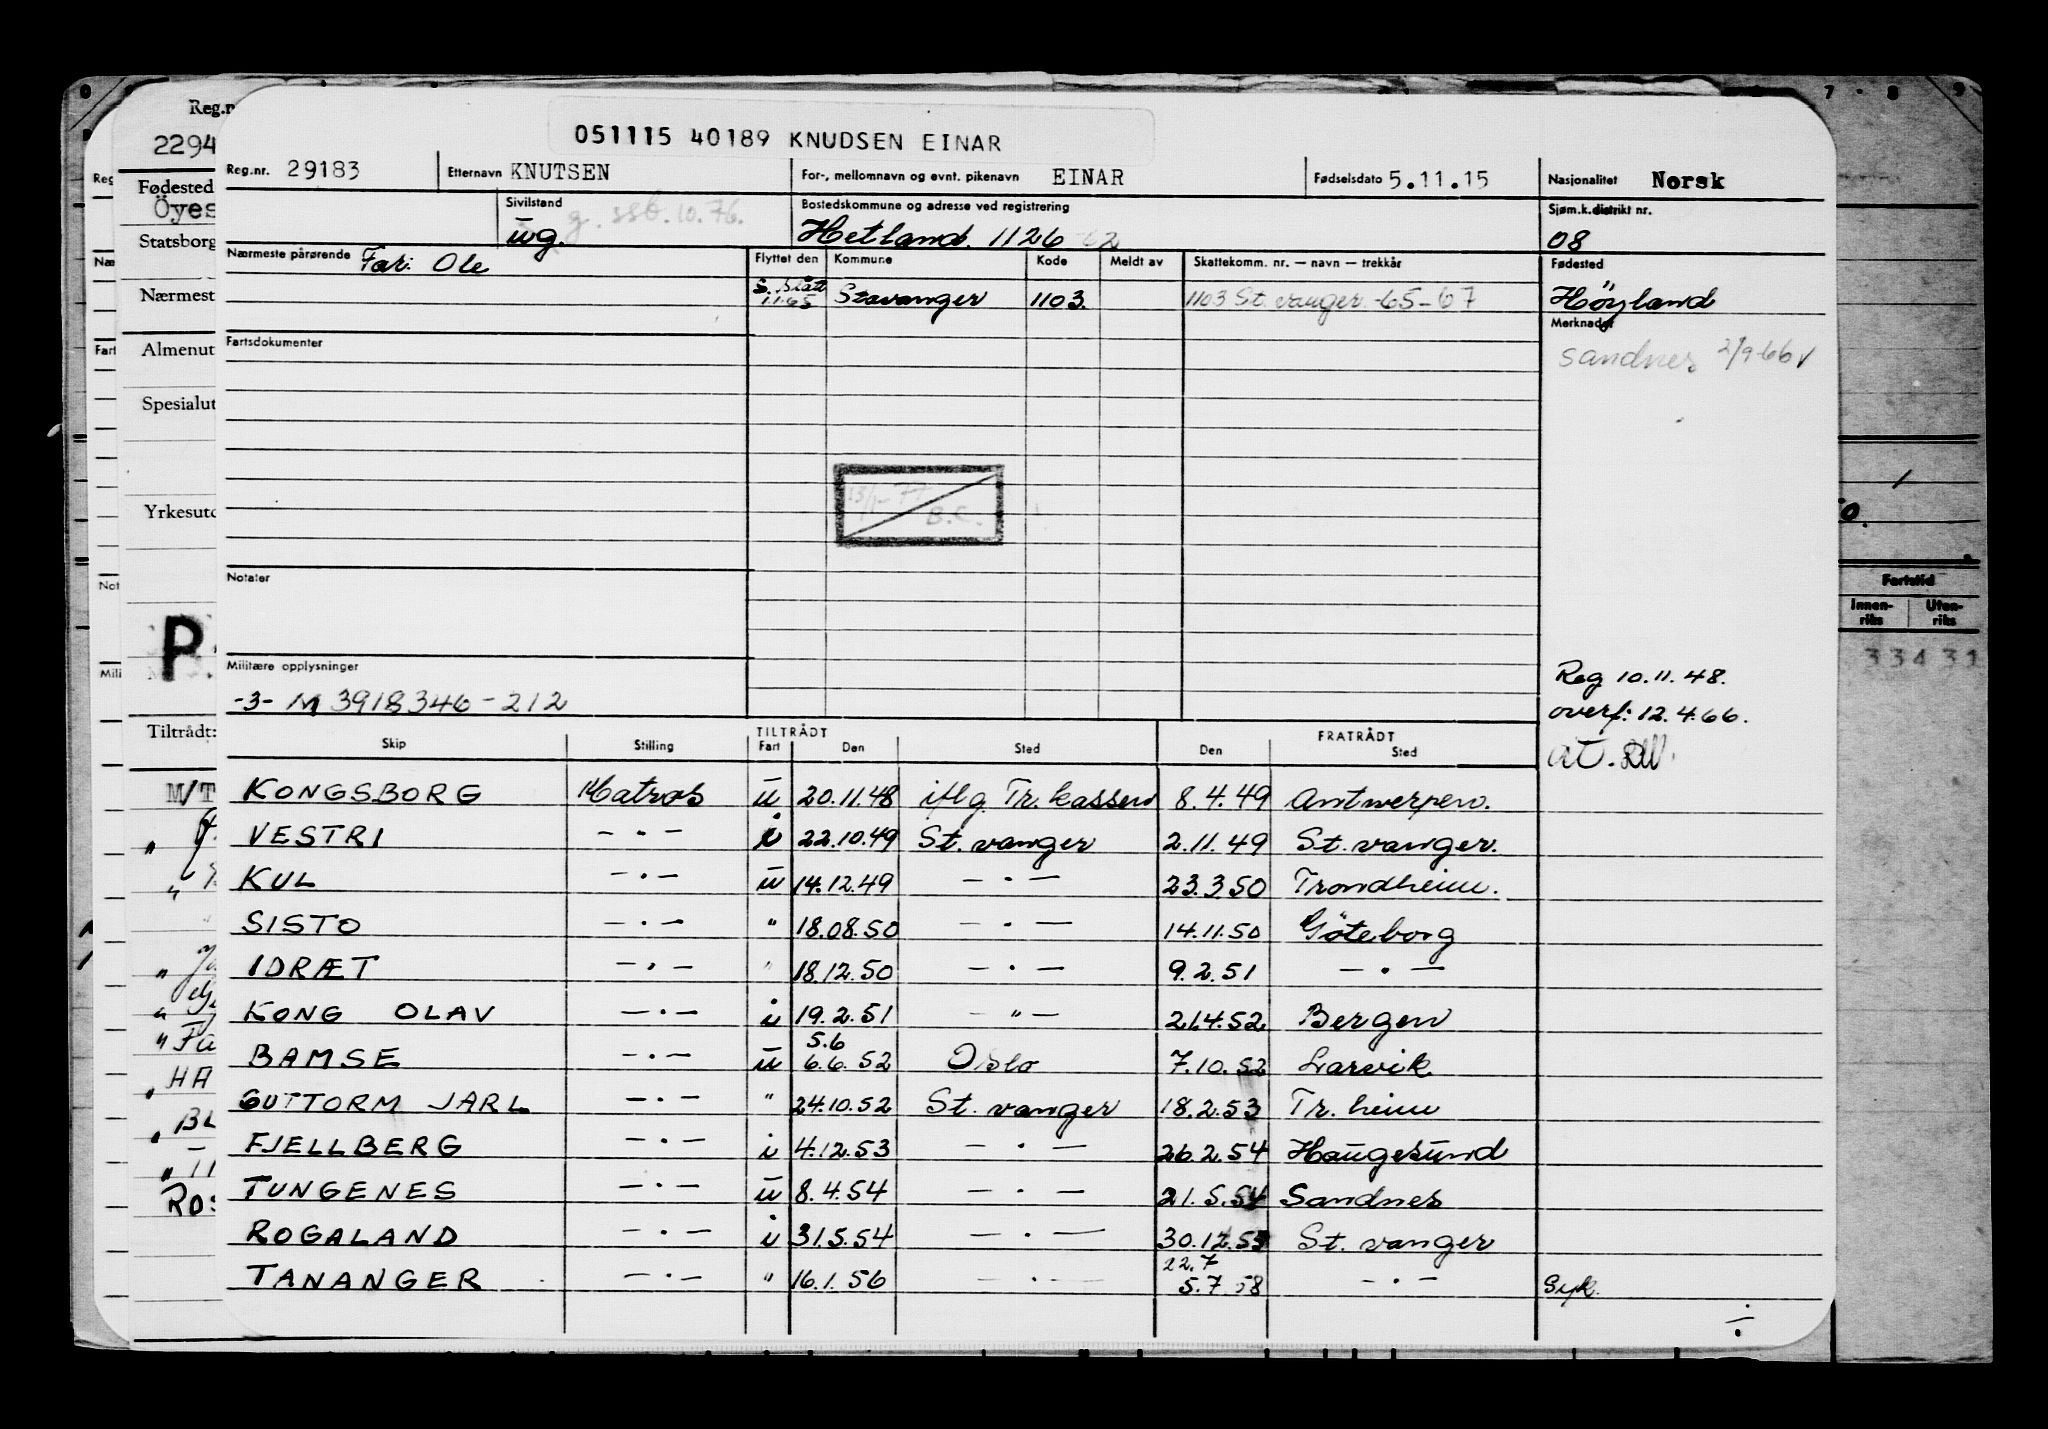 051115 40189 KNUDSEN EINAR
Reg.nr. 29183 Etternavn KNUTSEN For-, mellomnavn og evnt. pikenavn EINAR Fødselsdato 5.11.15 Nasjonalitet Norsk
Sivilstand ug. g. ssb. 10.76. Bostedskommune og adresse ved registrering Hetland. 1126 Sjøm.k.distrikt nr. 08
Nærmeste pårørende Far: Ole Flyttet den Kommune Kode Meldt av Skattekomm. nr. — navn — trekkår Fødested
1.1.65 Stavanger 1103. 1103 St. vanger -65-67 Høyland
Fartsdokumenter Merknader
Sandnes 2/9-66
13/1-77 B.C.
Notater
Militære opplysninger
-3- M 3918346-212
Reg 10.11.48.
overf: 12.4.66.
TILTRÅDT FRATRÅDT
Skip Stilling Fart Den Sted Den Sted
KONGSBORG Matros u 20.11.48 iflg Tr. kassen 8.4.49 Antwerpen.
VESTRI —·— i 22.10.49 St. vanger 2.11.49 St. vanger.
KUL —·— u 14.12.49 —·— 23.3.50 Trondheim.
SISTO —·— " 18.08.50 —·— 14.11.50 Göteborg
IDRÆT —·— " 18.12.50 —·— 9.2.51 —·—
KONG OLAV —·— i 19.2.51 —"— 21.4.52 Bergen
5.6
BAMSE —·— u 6.6.52 Oslo 7.10.52 Larvik
GUTTORM JARL —·— " 24.10.52 St. vanger 18.2.53 Tr. heim
FJELLBERG —·— i 4.12.53 —·— 26.2.54 Haugesund
TUNGENES —·— u 8.4.54 —·— 21.5.54 Sandnes
ROGALAND —·— i 31.5.54 —·— 30.12.55 St. vanger
22.7
TANANGER —·— " 16.1.56 —·— 5.7.58 —·— Syk.
Reg.n
2294
Fødested
Öyes
Statsborg
Nærmest
Almenut
Spesialut
Yrkesutd
P
Tiltrådt:
M/T
" Fa
" HA
" BL
ROS
Fartstid
Innen-riks Uten-riks
3 3 4 3 1